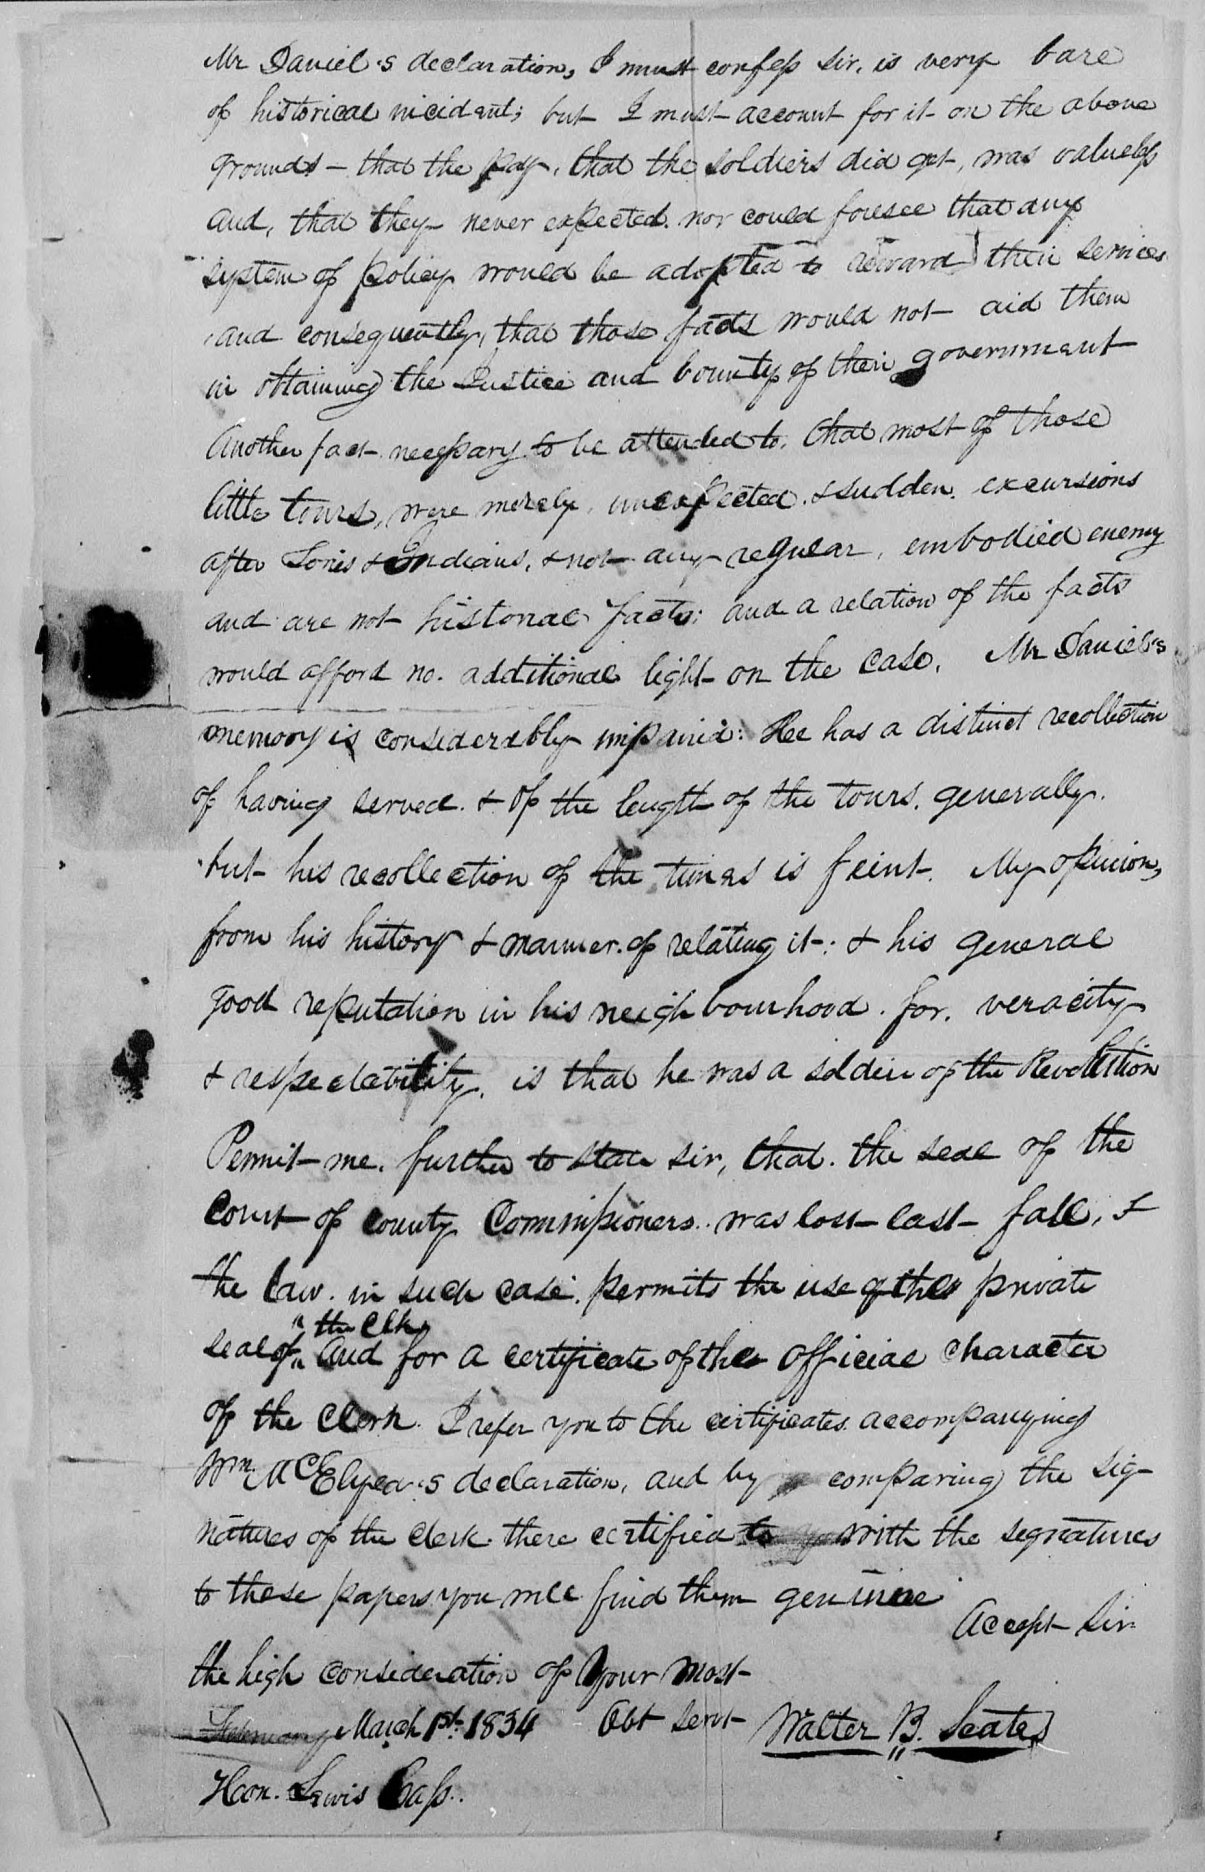 Mr Daniel's declaration, I must confess sir, is very bare
of historical incident; but I must account for it on the above
grounds – that the pay, that the soldiers did get, was valueless
and, that they never expected nor could foresee that any
system of policy would be adopted to reward their services
and consequently, that those facts would not aid them
in obtaining the Justice and bounty of their government
Another fact necessary to be attended to, that most of those
little tours, were merely, unexpected & sudden excursions
after Tories & Indians, & not any regular, embodied enemy
and are not historical facts; and a relation of the facts
would afford no additional light on the case. Mr Daniel's
memory is considerably impaired: Hee has a distinct recollection
of having served & of the length of the tours, generally.
but his recollection of the times is feint. My opinion,
from his history & manner of relating it; & his general
good reputation in his neighbourhood for veracity
& respectability, is that he was a soldier of the Revolution
Permit me, further to state sir, that the seal of the
Court of county Commissioners was lost last fall, &
the law in such case permits the use of the private
seal of
the Clk
And for a certificate of the official character
of the Clerk I refer you to the certificates accompanying
Wm McElyea's declaration, and by comparing the sig-
natures of the Clerk there certified to with the signatures
to these papers you will find them genuine
Accept Sir
the high consideration of Your most
February March 1st 1834 Obt Servt Walter B. Scates
Hon. Lewis Cass.